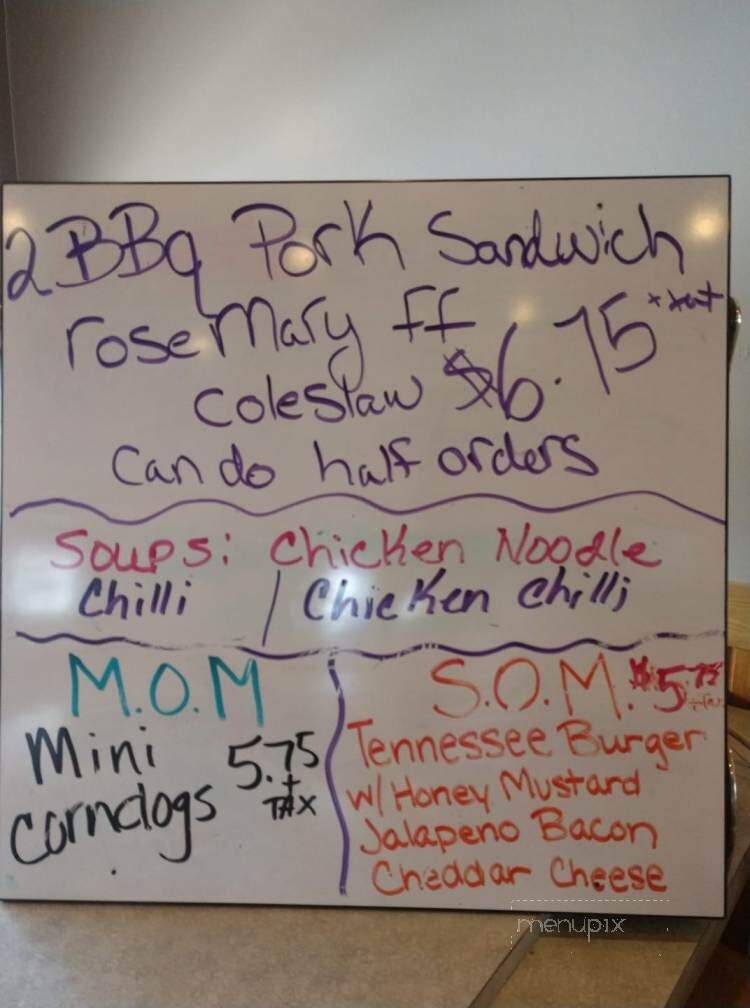 2 BBq Pork Sandwich
roseMary ff
coleslaw $6.75
can do half orders
Soups: Chicken Noodle
Chilli / Chicken Chilli
M.O.M
Mini 5.75
corndogs + TAX
S.O.M. $5.75
Tennessee Burger
w/ Honey Mustard
Jalapeno Bacon
Cheddar Cheese
menupix